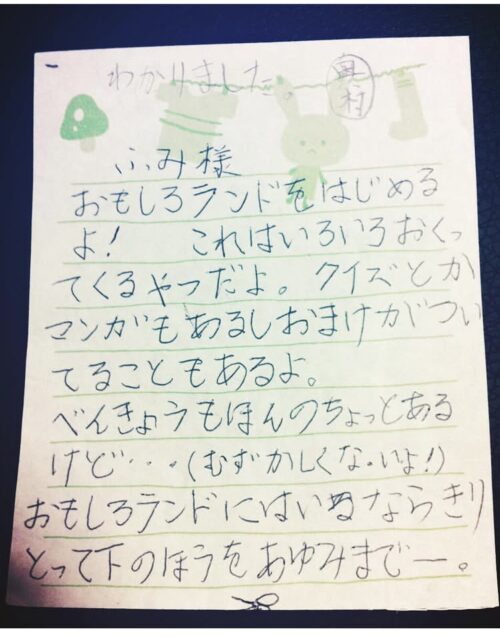 わかりました。 奥村
ふみ様
おもしろランドをはじめる
よ! これはいろいろおくっ
てくるやつだよ。クイズとか
マンガもあるしおまけがつい
てることもあるよ。
べんきょうもほんのちょっとある
けど・・・(むずかしくな・いよ!)
おもしろランドにはいるならきり
とって下のほうをあゆみまでー。